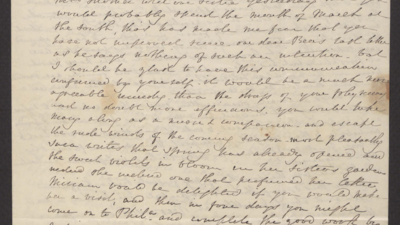 would probably spend the month of March at
the South, that has made me fear that you
have not improved since our dear Bren's last letter
as he says nothing of such an intention, but
I should be glad to have this communication
confirmed by yourself, it would be a much more
agreeable remedy than the drugs of your Physician
and no doubt more efficacious, you would take
Mary along as a nurse & companion and escape
the rude winds of the coming season most pleasantly
writes that Spring has already opened and
the sweet violets in bloom in her Sisters garden
inclosed me one that perfumed her letter,
William would be delighted if you would make
him a visit, and then in a few days you might
come on to Phila. and complete the good work by